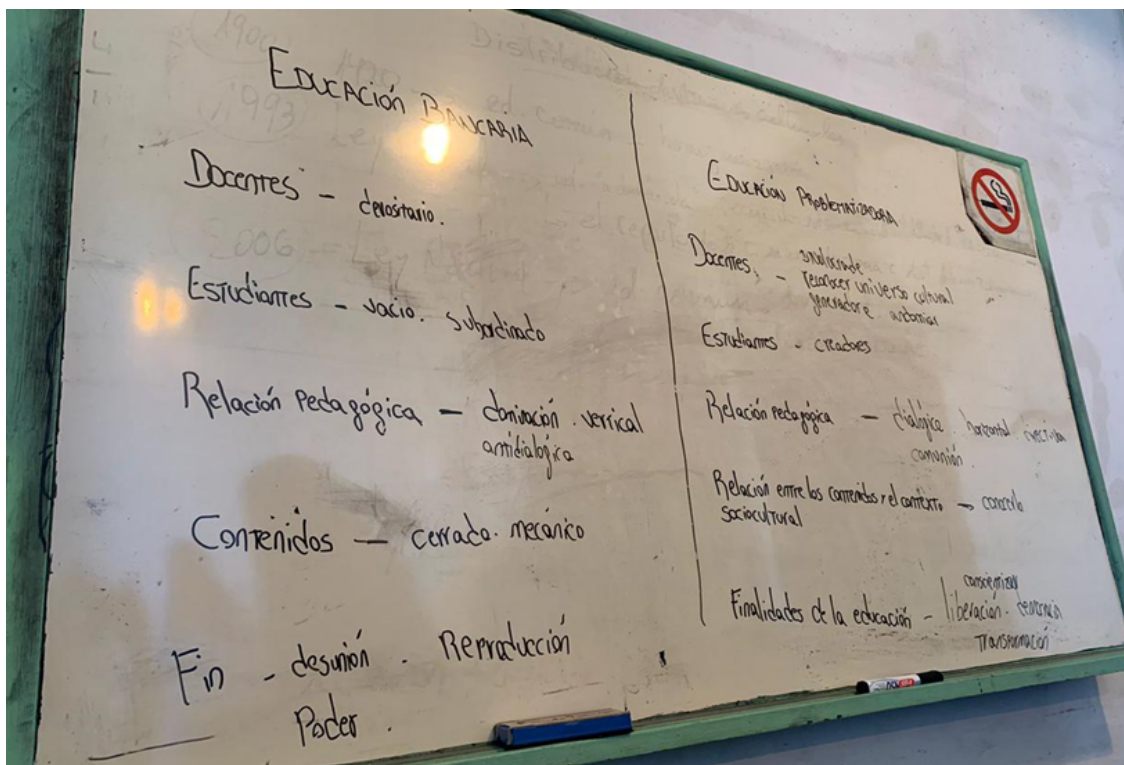 EDUCACIÓN BANCARIA
Docentes - depositario.
Estudiantes - vacio. subordinado
Relación Pedagógica — dominación. vertical
antidialógica
Contenidos — cerrado. mecánico
Fin - desunión. Reproducción
Poder.
EDUCACIÓN PROBLEMATIZADORA
Docentes. -
reconocer universo cultural
generador
Estudiantes - creadores
Relación pedagógica — dialógica. horizontal
comunión.
Relación entre los contenidos y el contexto →
sociocultural
Finalidades de la educación - liberación.
Transformación